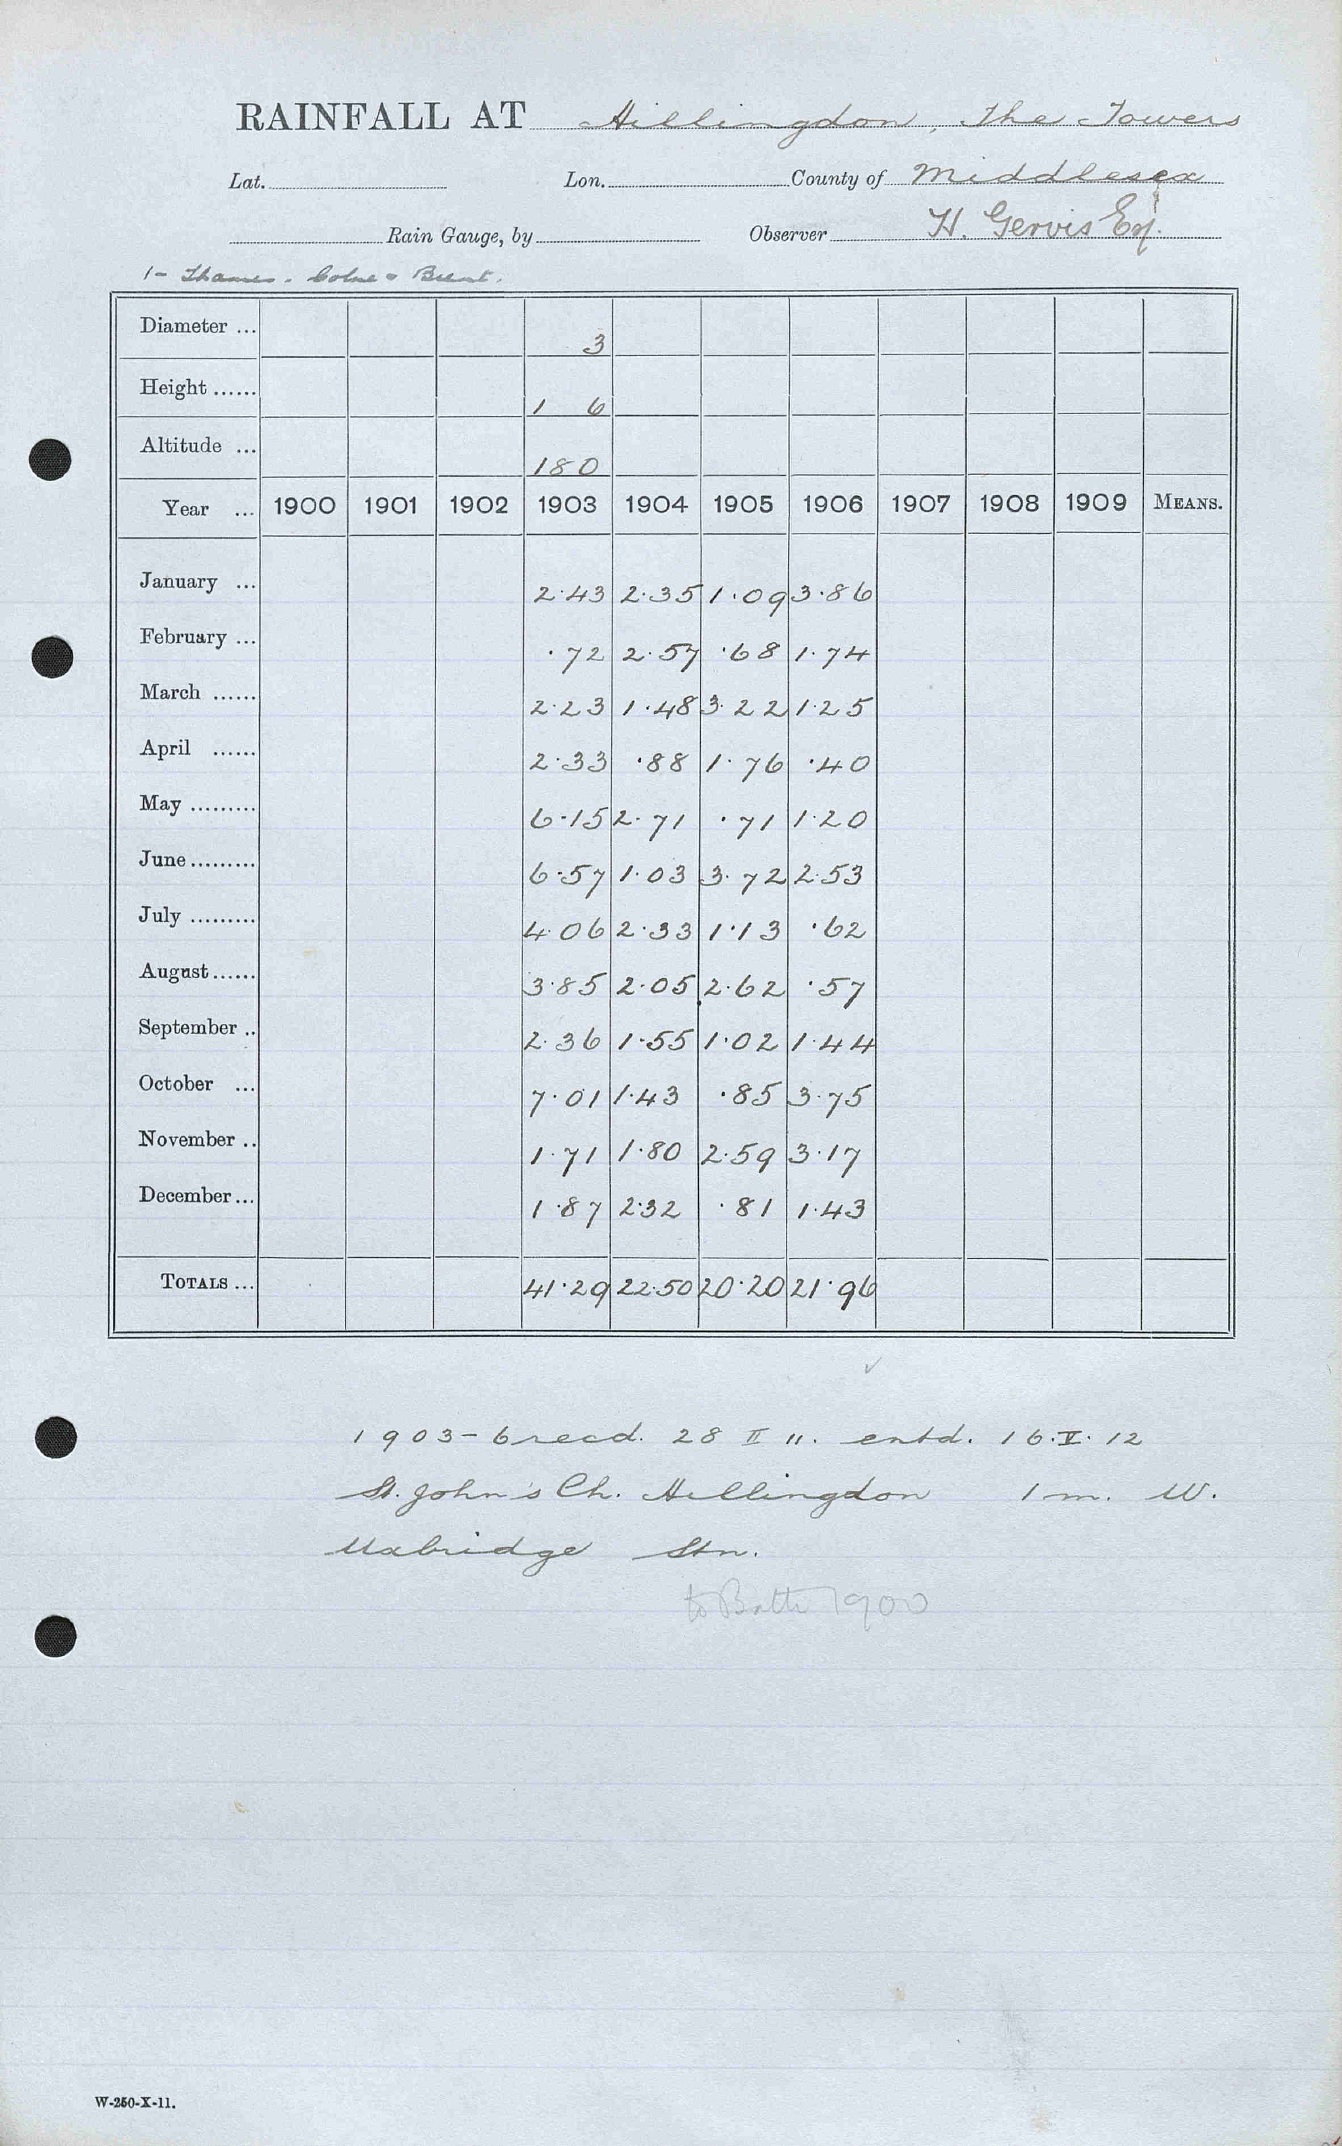 RAINFALL AT Hillingdon, The Towers
Lat. Lon. County of Middlesex
Rain Gauge, by Observer H. Gervis Esq.
1- Thames. Colne & Brent.
Diameter ... 3
Height ...... 1 6
Altitude ... 180
Year ... 1900 1901 1902 1903 1904 1905 1906 1907 1908 1909 MEANS.
January ... 2.43 2.35 1.09 3.86
February ... .72 2.57 .68 1.74
March ...... 2.23 1.48 3.22 1.25
April ...... 2.33 .88 1.76 .40
May ......... 6.15 2.71 .71 1.20
June ......... 6.57 1.03 3.72 2.53
July ......... 4.06 2.33 1.13 .62
August ...... 3.85 2.05 2.62 .57
September .. 2.36 1.55 1.02 1.44
October ... 7.01 1.43 .85 3.75
November .. 1.71 1.80 2.59 3.17
December ... 1.87 2.32 .81 1.43
TOTALS ... 41.29 22.50 20.20 21.96
1903-6 recd. 28 II 11. entd. 16.V.12
St. John's Ch. Hillingdon 1 m. W.
Uxbridge Stn.
to Bath 1900
W-250-X-11.